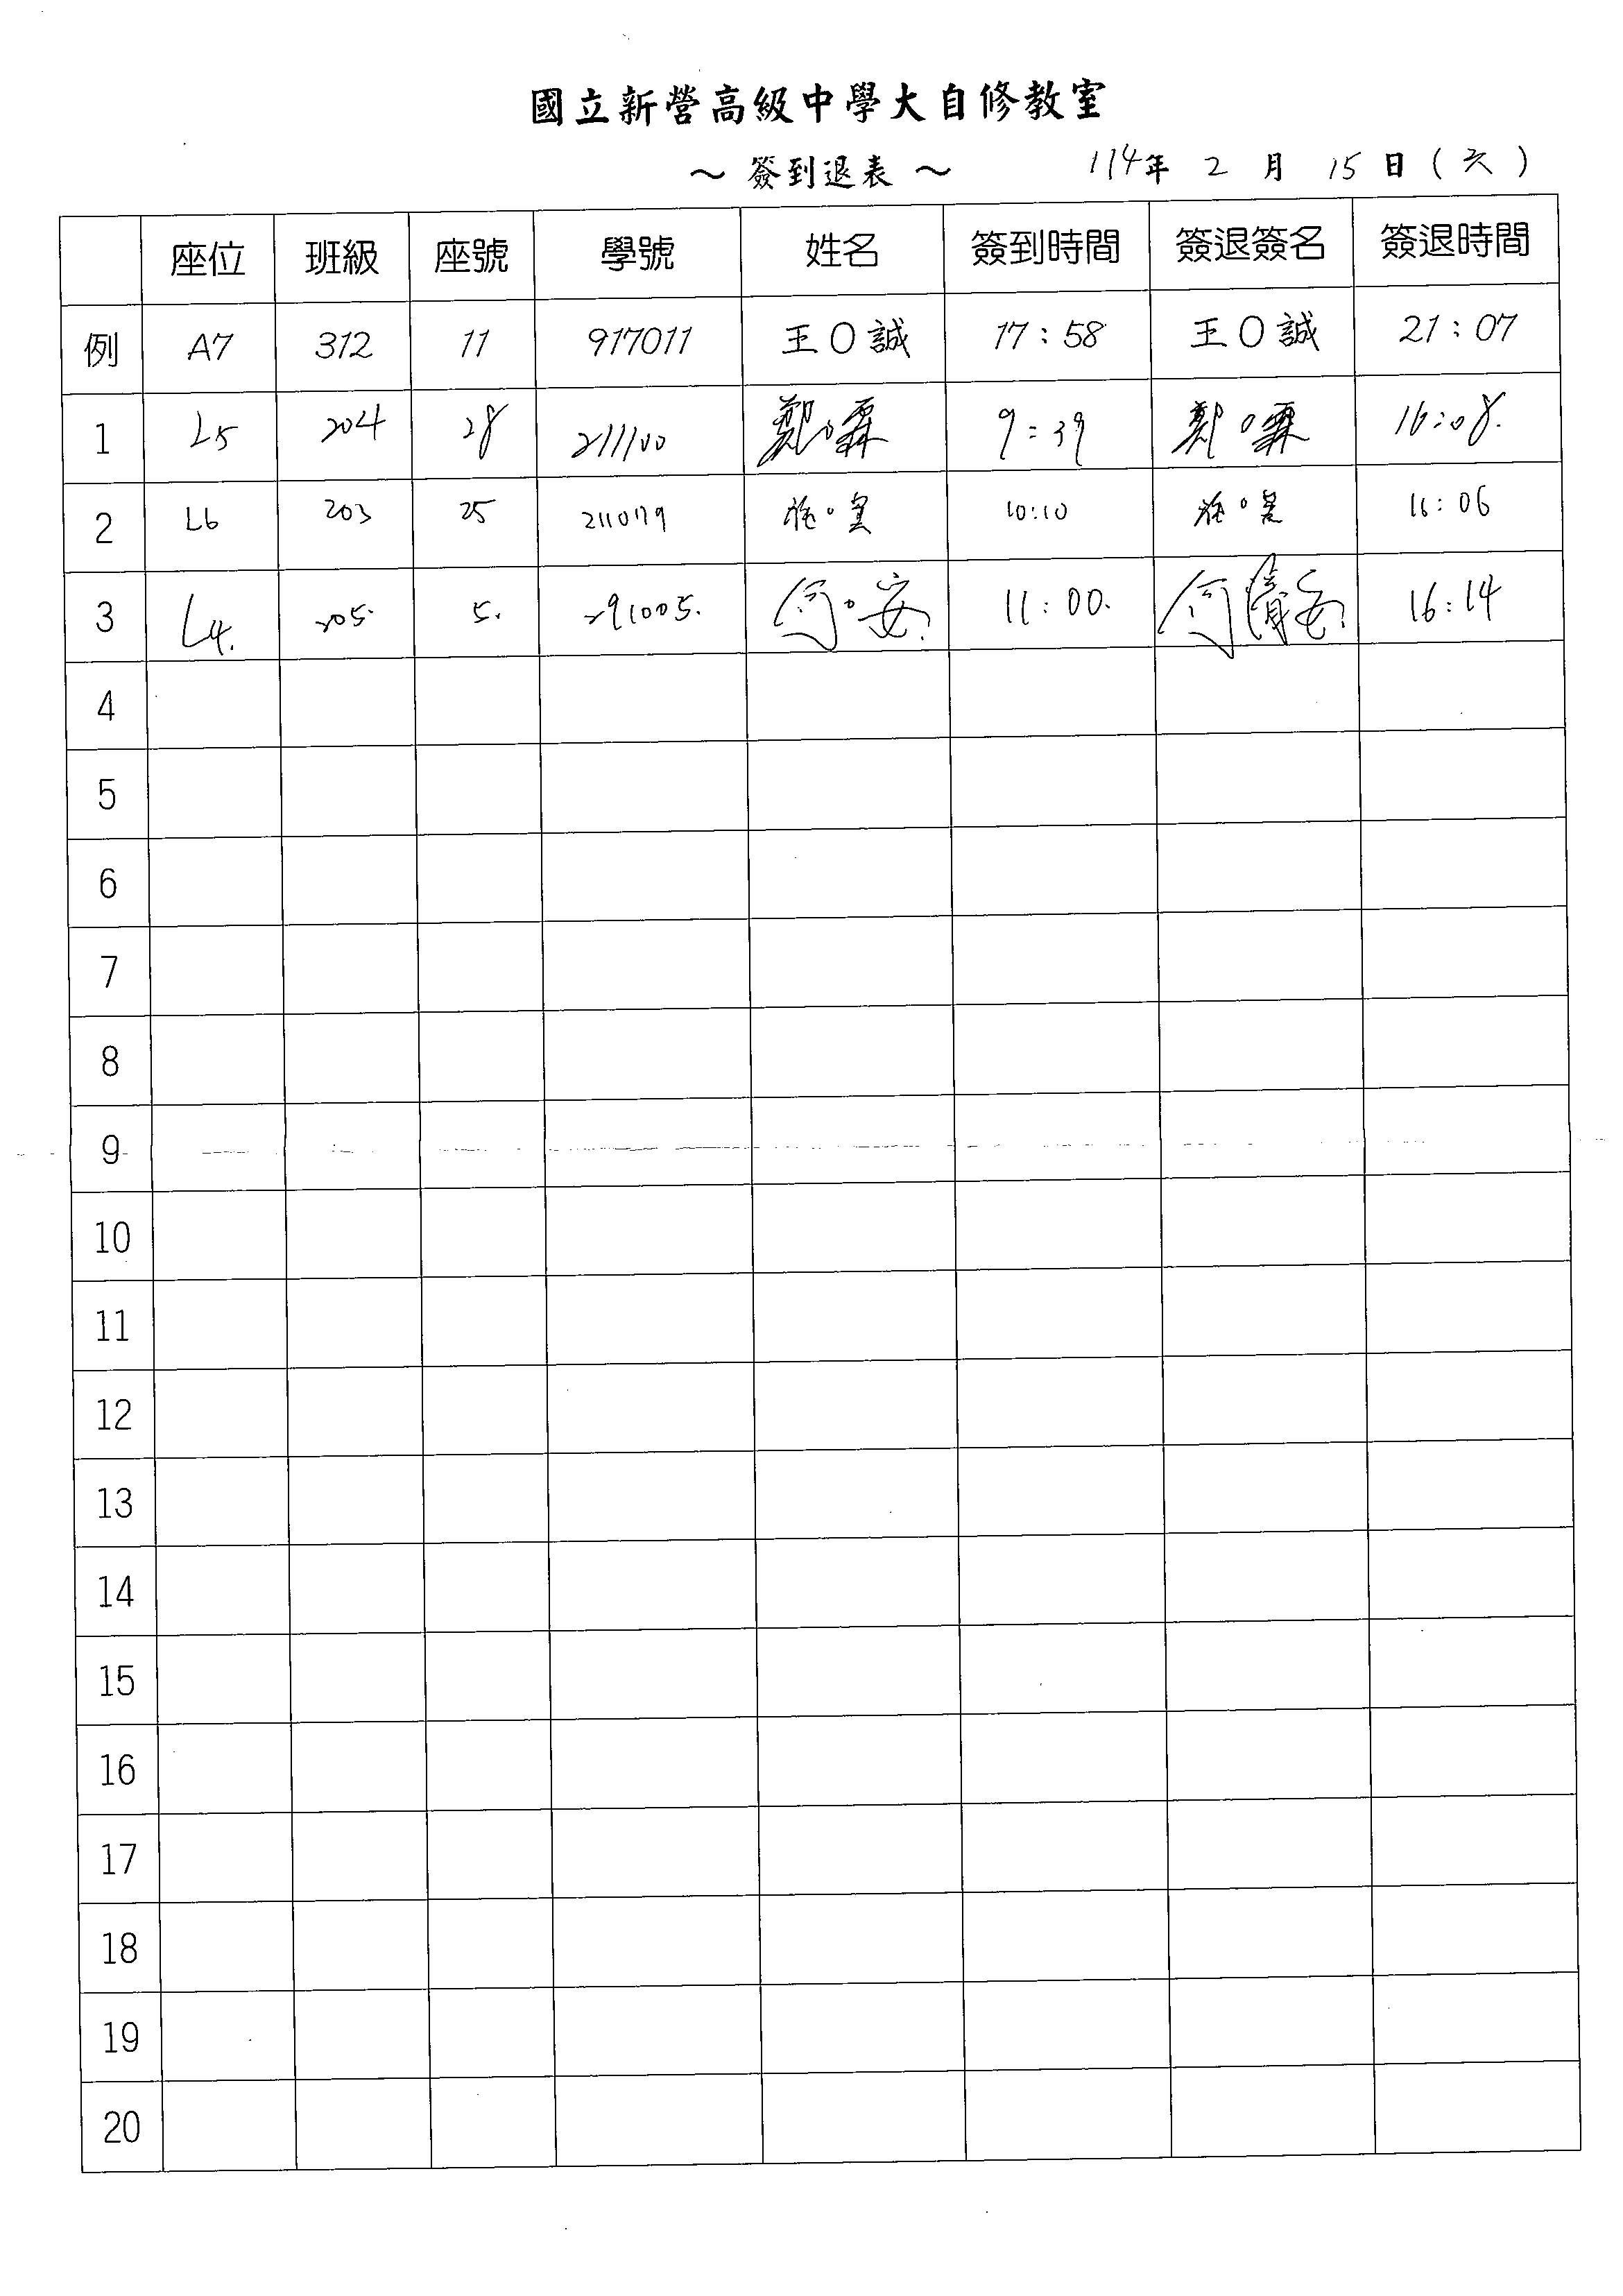 國立新營高級中學大自修教室
～ 簽到退表 ～ 114年 2 月 15 日 ( 六 )
座位 班級 座號 學號 姓名 簽到時間 簽退簽名 簽退時間
例 A7 312 11 917011 王O誠 17:58 王O誠 21:07
1 L5 204 28 211100 鄭○霖 9:39 鄭○霖 16:08.
2 L6 203 25 211079 10:10 16:06
3 L4. 205. 5. 291005. 何○安. 11:00. 何 安. 16:14
4
5
6
7
8
9
10
11
12
13
14
15
16
17
18
19
20